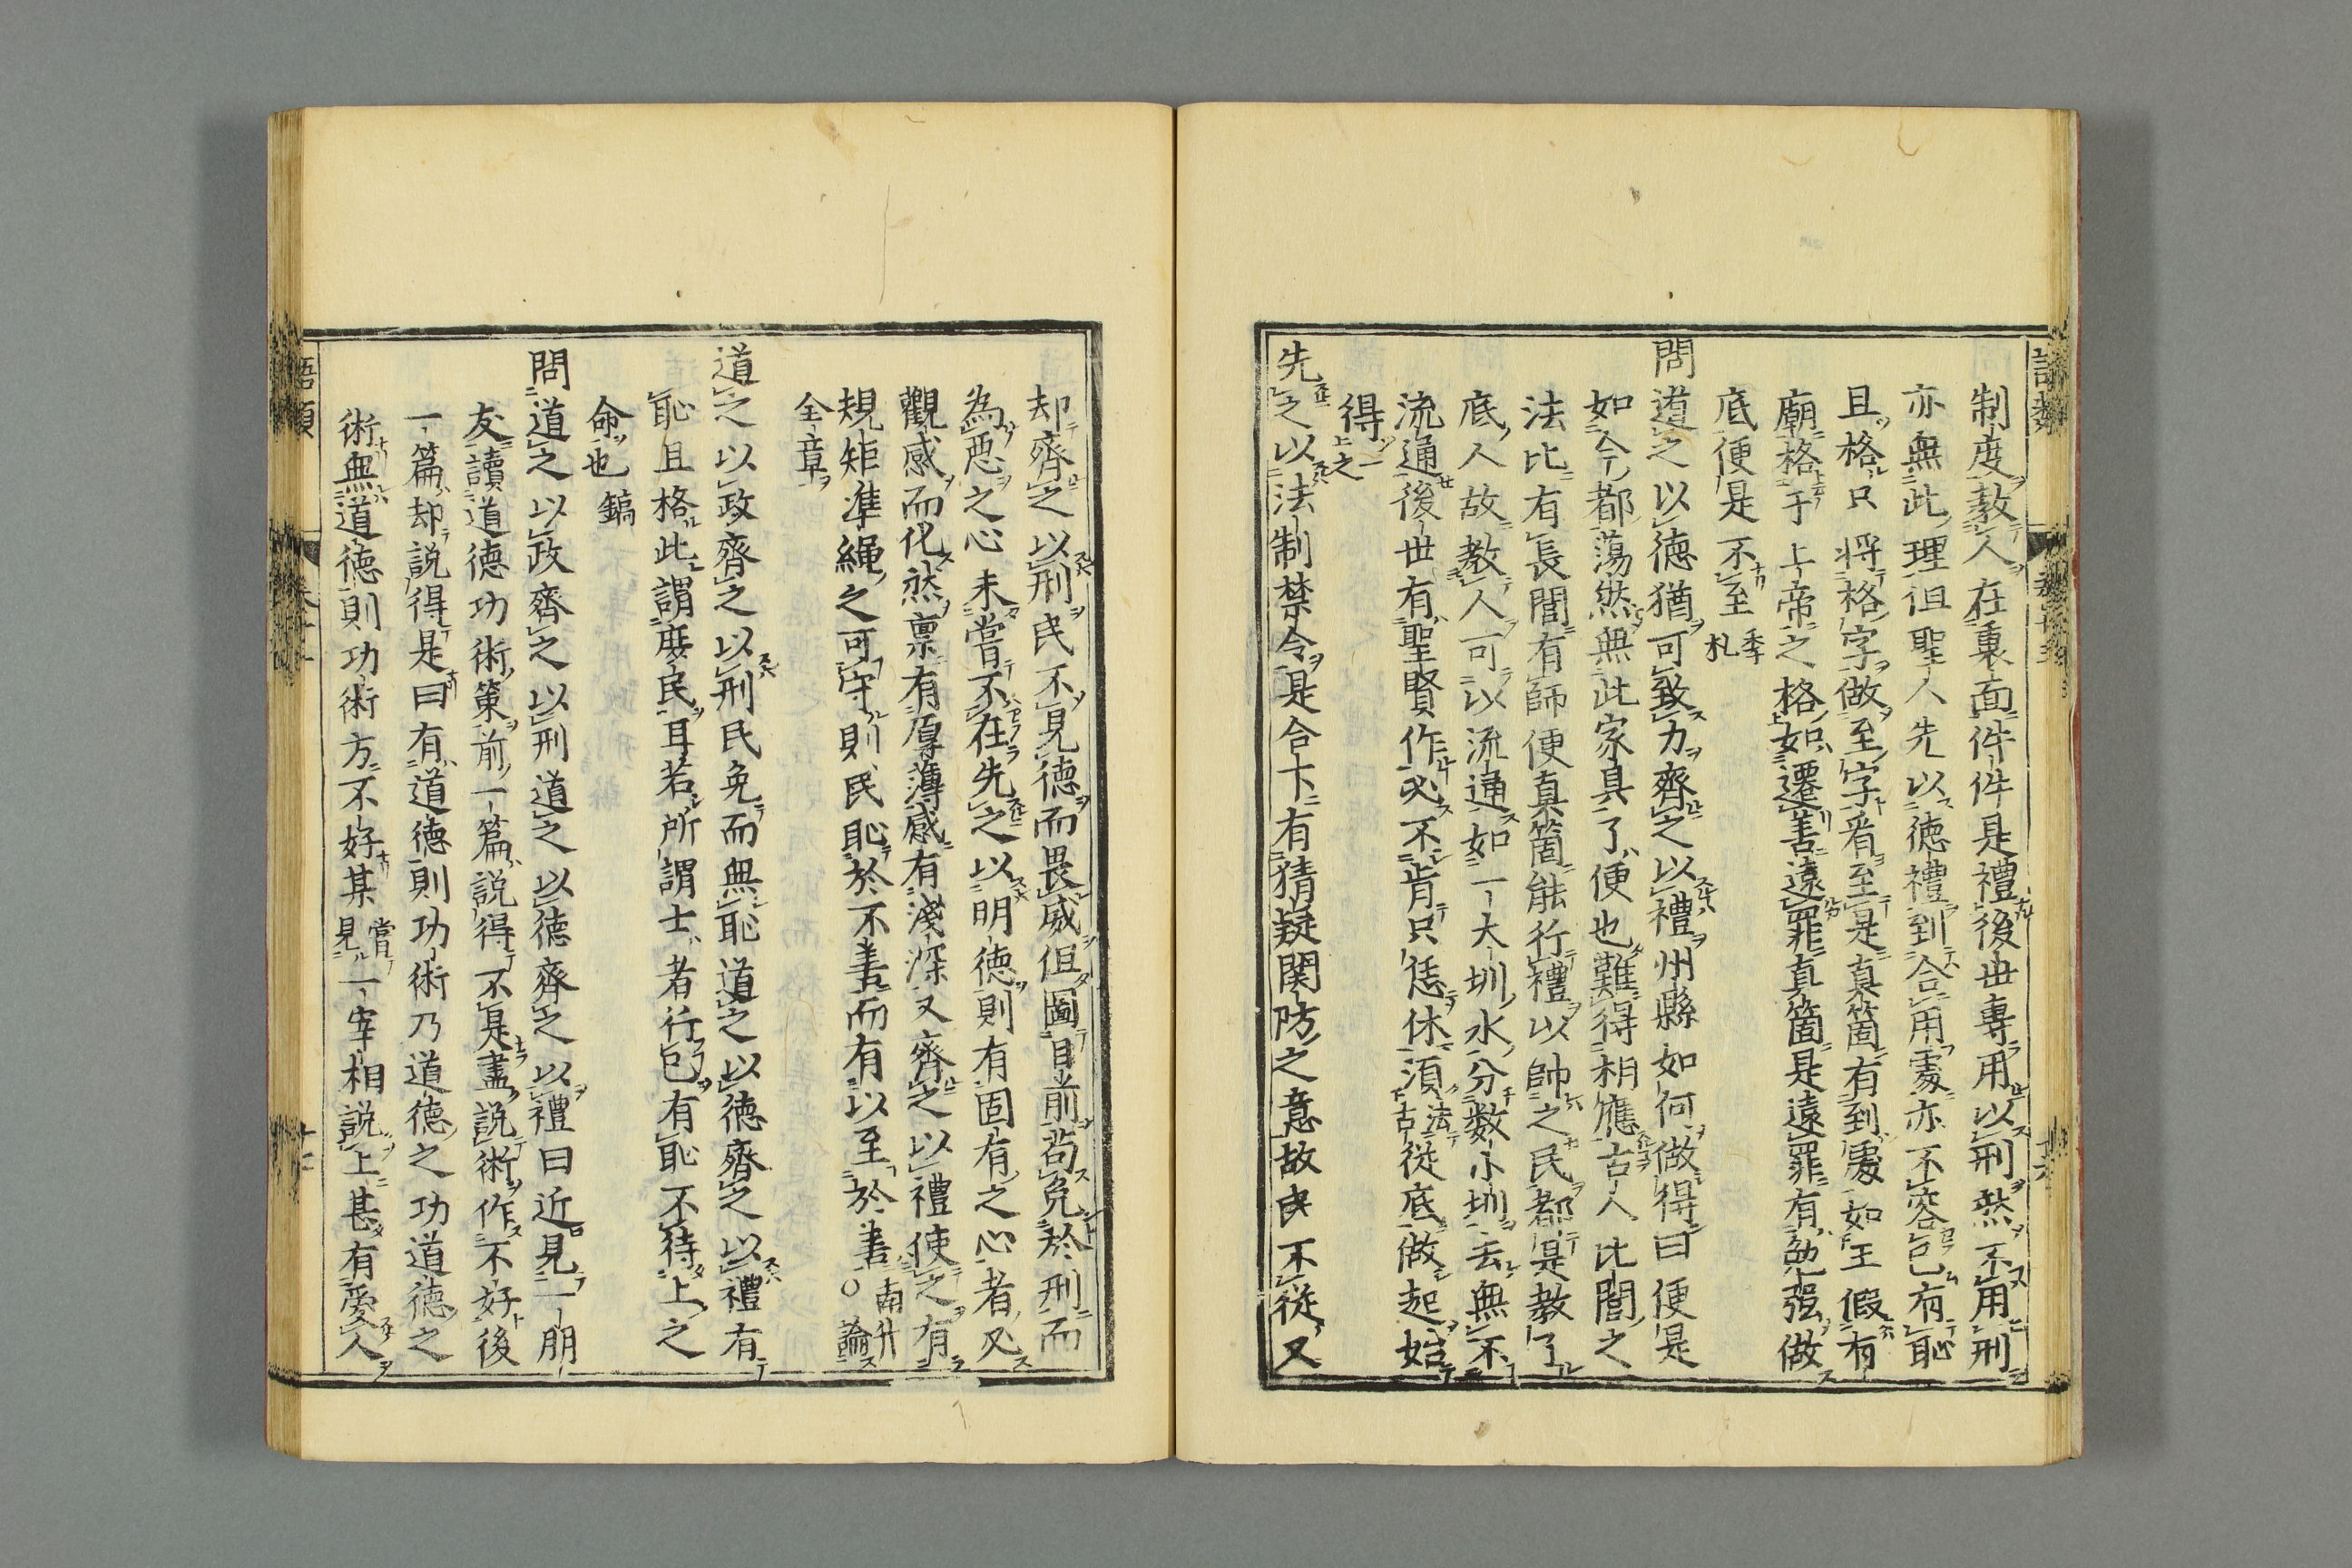 制度教人在裏面件件是禮後世專用以刑然不用刑
亦無此理但聖人先以德禮到合用處亦不容已有恥
且格只將格字做至字看至是真箇有到處如王假有
廟格于上帝之格如遷善遠罪真箇是遠罪有勉强做
底便是不至季札
問道之以德猶可致力齊之以禮州縣如何做得曰便是
如今都蕩然無此家具了便也難得相應古人比閭之
法比有長閭有師便真箇能行禮以帥之民都是教了
底人故教人可以流通如一大圳水分數小圳去無不
流通後世有聖賢作必不肯只恁休須法古從底做起始
得上之
先之以法制禁令是合下有猜疑関防之意故民不從又
却齊之以刑民不見德而畏威但圖目前苟免於刑而
為惡之心未嘗不在先之以明德則有固有之心者必
觀感而化然稟有厚薄感有淺深又齊之以禮使之有
規矩準繩之可守則民恥於不善而有以至於善南升○論
全章
道之以政齊之以刑民免而無恥道之以德齊之以禮有
恥且格此謂庶民耳若所謂士者行已有恥不待上之
命也鎬
問道之以政齊之以刑道之以德齊之以禮曰近見一朋
友讀道德功術策前一篇説得不是盡説術作不好後
一篇却説得是曰有道德則功術乃道德之功道德之
術無道德則功術方不好某嘗見一宰相説上甚有愛人